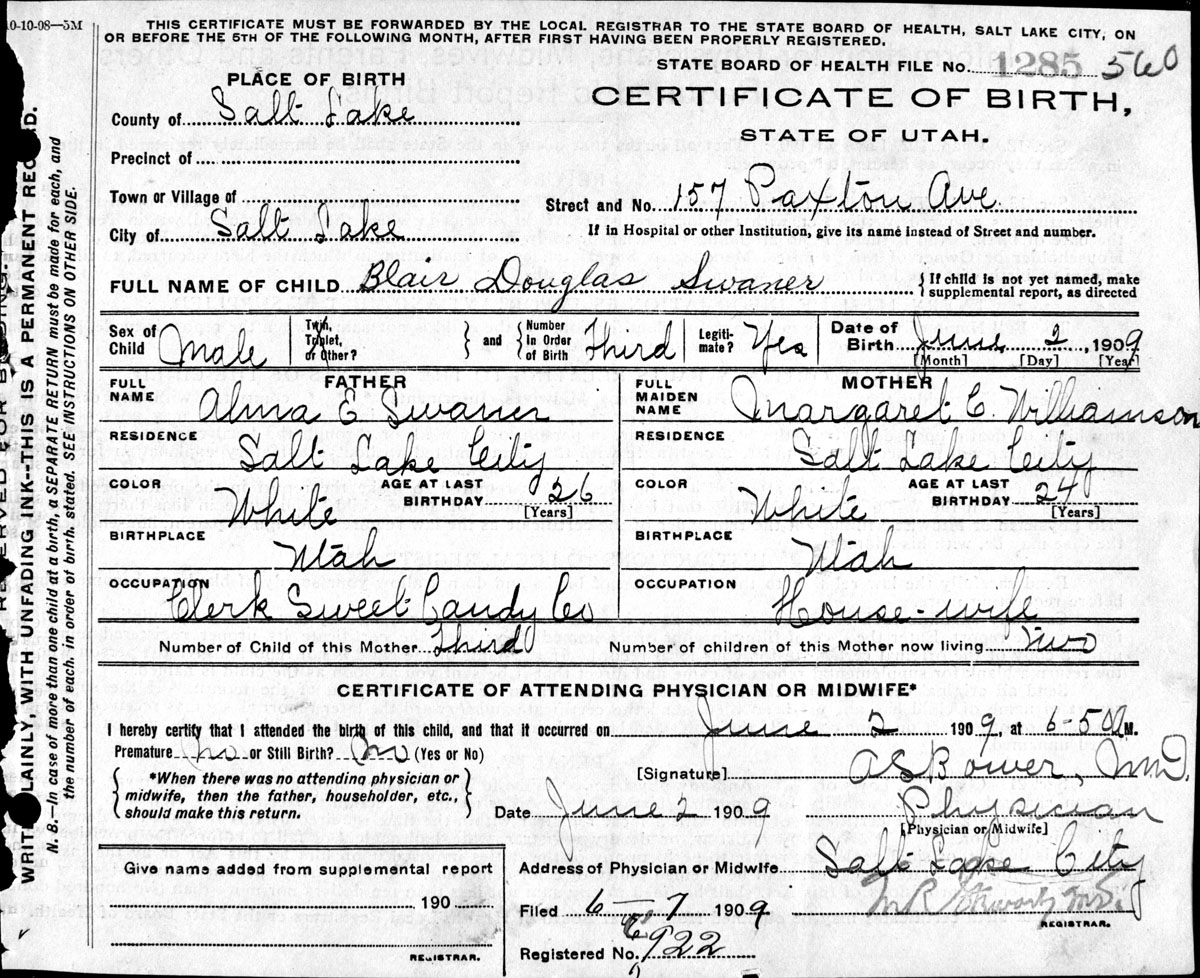 10-10-08—5M
THIS CERTIFICATE MUST BE FORWARDED BY THE LOCAL REGISTRAR TO THE STATE BOARD OF HEALTH, SALT LAKE CITY, ON
OR BEFORE THE 5TH OF THE FOLLOWING MONTH, AFTER FIRST HAVING BEEN PROPERLY REGISTERED.
STATE BOARD OF HEALTH FILE No. 1285 560
PLACE OF BIRTH
CERTIFICATE OF BIRTH,
STATE OF UTAH.
County of Salt Lake
Precinct of
Town or Village of
Street and No. 157 Paxton Ave.
City of Salt Lake
If in Hospital or other Institution, give its name instead of Street and number.
FULL NAME OF CHILD Blair Douglas Swaner
If child is not yet named, make
supplemental report, as directed
Sex of Child Male
Twin, Triplet, or Other? and Number In Order of Birth Third
Legiti-mate? Yes
Date of Birth June 2, 1909
[Month] [Day] [Year]
FATHER
FULL NAME Alma E Swaner
MOTHER
FULL MAIDEN NAME Margaret C. Williamson
RESIDENCE Salt Lake City
RESIDENCE Salt Lake City
COLOR White AGE AT LAST BIRTHDAY 26 [Years]
COLOR White AGE AT LAST BIRTHDAY 24 [Years]
BIRTHPLACE Utah
BIRTHPLACE Utah
OCCUPATION Clerk Sweet Candy Co
OCCUPATION House-wife
Number of Child of this Mother Third
Number of children of this Mother now living Two
CERTIFICATE OF ATTENDING PHYSICIAN OR MIDWIFE*
I hereby certify that I attended the birth of this child, and that it occurred on June 2 1909, at 6-50 M.
Premature No or Still Birth? No (Yes or No)
*When there was no attending physician or
midwife, then the father, householder, etc.,
should make this return.
[Signature] A S Bower, M.D.
Date June 2 1909 Physician
[Physician or Midwife]
Give name added from supplemental report
190
REGISTRAR.
Address of Physician or Midwife Salt Lake City
Filed 6-7 1909
REGISTRAR.
Registered No. 922
WRITE PLAINLY WITH UNFADING INK—THIS IS A PERMANENT RECORD.
N. B.—In case of more than one child at a birth, a SEPARATE RETURN must be made for each, and
the number of each, in order of birth, stated. SEE INSTRUCTIONS ON OTHER SIDE.